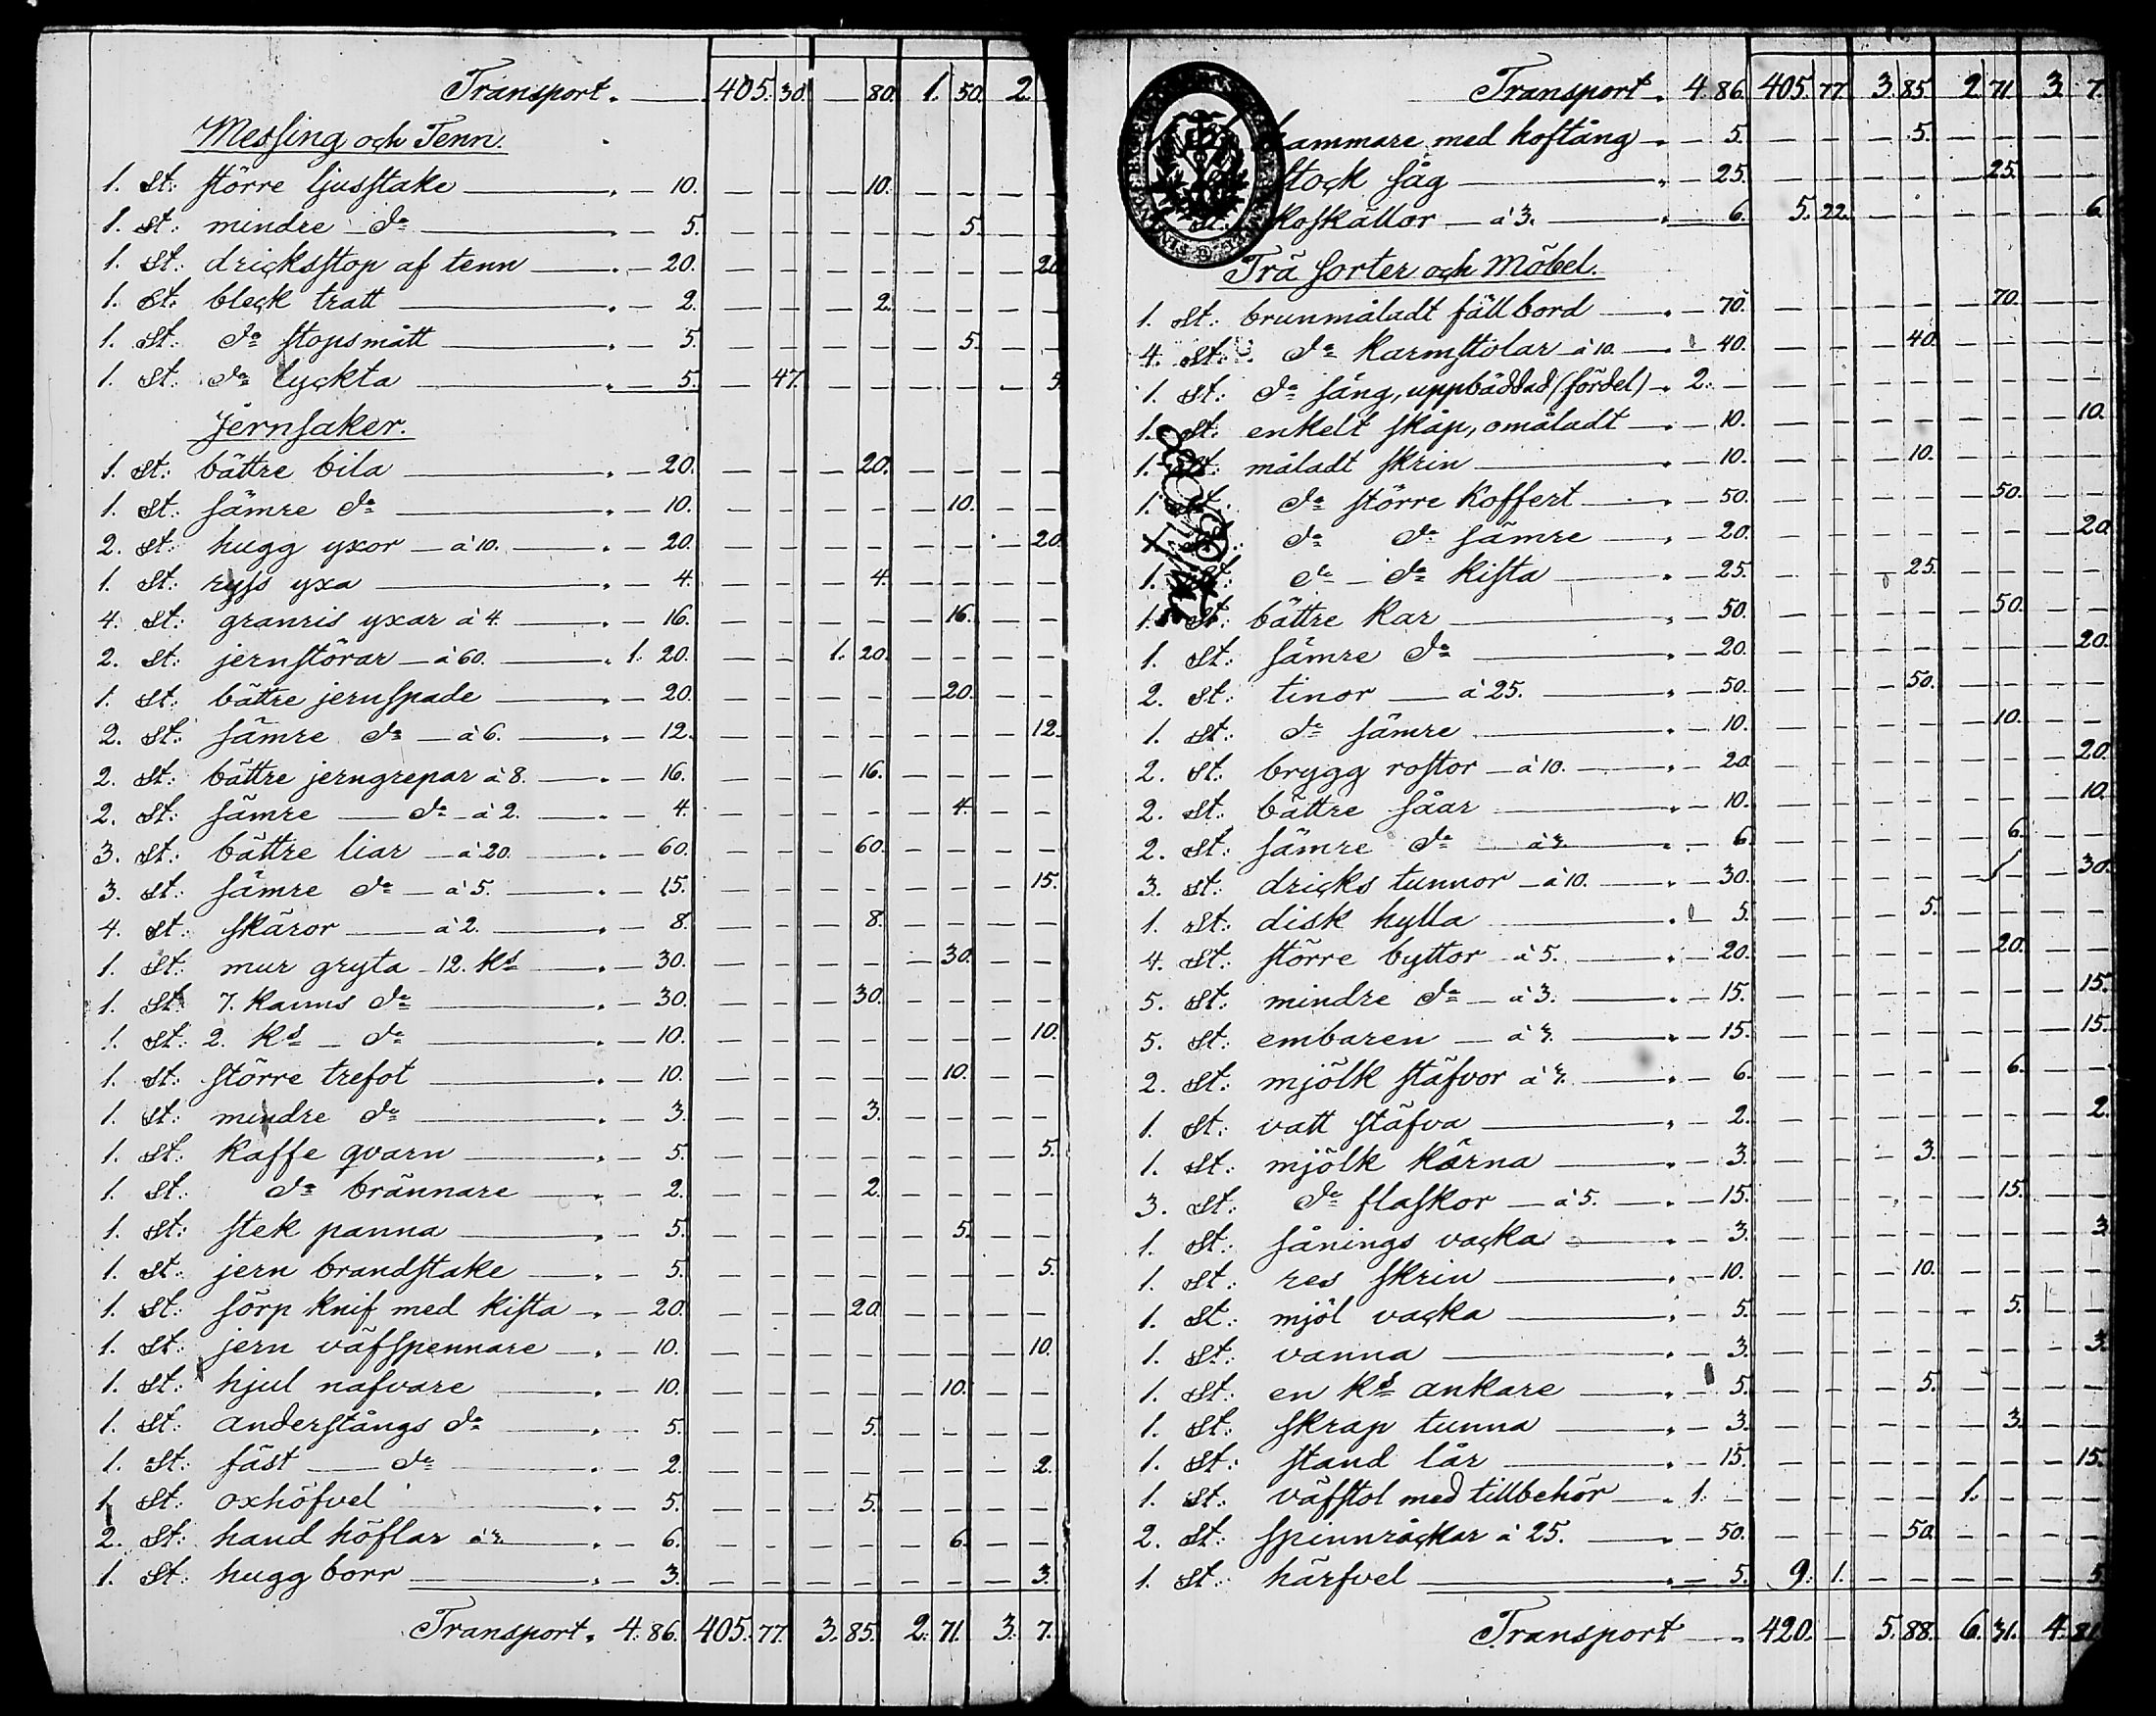 Transport. — 405. 30. — 80. 1. 50. 2.
Messing och Tenn.
1. St: större ljusstake — 10. — — — 10. — — — —
1. St: mindre do — 5. — — — — — 5. — —
1. St: dricksstop af tenn — 20. — — — — — — — 20
1. St: bleck tratt — 2. — — — 2. — — — —
1. St: do stopsmått — 5. — — — — — 5. — —
1. St: do lyckta — 5. — 47. — — — — — 5
Jernsaker.
1. St: bättre bila — 20. — — — 20. — — — —
1. St: sämre do — 10. — — — — — 10. — —
2. St: hugg yxor — à 10. — 20. — — — — — — — 20
1. St: ryss yxa — 4. — — — 4. — — — —
4. St: granris yxar à 4. — 16. — — — — — 16. — —
2. St: jernstörar — à 60. — 1. 20. — — 1. 20. — — — —
1. St: bättre jernspade — 20. — — — — — 20. — —
2. St: sämre do — à 6. — 12. — — — — — — — 12.
2. St: bättre jerngrepar à 8. — 16. — — — 16. — — — —
2. St: sämre — do — à 2. — 4. — — — — — 4. — —
3. St: bättre liar — à 20. — 60. — — — 60. — — — —
3. St: sämre do — à 5. — 15. — — — — — — — 15.
4. St: skäror — à 2. — 8. — — — 8. — — — —
1. St: mur gryta — 12. ks — 30. — — — — — 30. — —
1. St: 7. kanns do — 30. — — — 30. — — — —
1. St: 2. ks — do — 10. — — — — — — — 10.
1. St: större trefot — 10. — — — — — 10. — —
1. St: mindre do — 3. — — — 3. — — — —
1. St: kaffe qvarn — 5. — — — — — — — 5.
1. St: do brännare — 2. — — — 2. — — — —
1. St: stek panna — 5. — — — — — 5. — —
1. St: jern brandstake — 5. — — — — — — — 5.
1. St: sörp knif med kista — 20. — — — 20. — — — —
1. St: jern väfspennare — 10. — — — — — — — 10.
1. St: hjul nafvare — 10. — — — — — 10. — —
1. St: anderstångs do — 5. — — — 5. — — — —
1. St: fäst — do — 2. — — — — — — — 2.
1. St: oxhöfvel — 5. — — — 5. — — — —
2. St: hand höflar à 3. — 6. — — — — — 6. — —
1. St: hugg borr — 3. — — — — — — — 3.
Transport. 4. 86. 405. 77. 3. 85. 2. 71. 3. 7.
Transport. 4. 86. 405. 77. 3. 85. 2. 71. 3. 7.
hammare med hoftång — 5. — — — 5. — — — —
stock såg — 25. — — — — — 25. — —
koskällor — à 3. — 6. 5. 22. — — — — — 6.
Trä sorter och Möbel.
1. St: brunmåladt fällbord — 70. — — — — — 70. — —
4. St: do karmstolar à 10. — 40. — — — 40. — — — —
1. St: do säng, uppbäddad (fördel) — 2. — — — — — — — — —
1. St: enkelt skåp, omåladt — 10. — — — — — — — 10.
1. St: måladt skrin — 10. — — — 10. — — — —
1. St: do större koffert — 50. — — — — — 50. — —
do do sämre — 20. — — — — — — — 20
1. St: do — do kista — 25. — — — 25. — — — —
1. St: bättre kar — 50. — — — — — 50. — —
1. St: sämre do — 20. — — — — — — — 20.
2. St: tinor — à 25. — 50. — — — 50. — — — —
1. St: do sämre — 10. — — — — — 10. — —
2. St: brygg rostor — à 10. — 20 — — — — — — — 20.
2. St: bättre såar — 10. — — — — — — — 10.
2. St: sämre do — à 3. — 6. — — — — — 6. — —
3. St: dricks tunnor — à 10. — 30. — — — — — — — 30.
1. St: disk hylla — 5. — — — 5. — — — —
4. St: större byttor — à 5. — 20. — — — — — 20. — —
5. St: mindre do — à 3. — 15. — — — — — — — 15.
5. St: embaren — à 3. — 15. — — — — — — — 15.
2. St: mjölk stäfvor à 3. — 6. — — — — — 6. — —
1. St: vatt stäfva — 2. — — — — — — — 2.
1. St: mjölk kärna — 3. — — — 3. — — — —
3. St: do flaskor — à 5. — 15. — — — — — 15. — —
1. St: sånings vacka — 3. — — — — — — — 3
1. St: res skrin — 10. — — — 10. — — — —
1. St: mjöl vacka — 5. — — — — — 5. — —
1. St: vanna — 3. — — — — — — — 3.
1. St: en ks ankare — 5. — — — 5. — — — —
1. St: skrap tunna — 3. — — — — — 3. — —
1. St: stand lår — 15. — — — — — — — 15.
1. St: väfstol med tillbehör — 1. — — — — — 1. — — —
2. St: spinnråckar à 25. — 50. — — — 50. — — — —
1. St: härfvel — 5. 9. 1. — — — — — 5
Transport — 420. — 5. 88. 6. 31. 4. 81